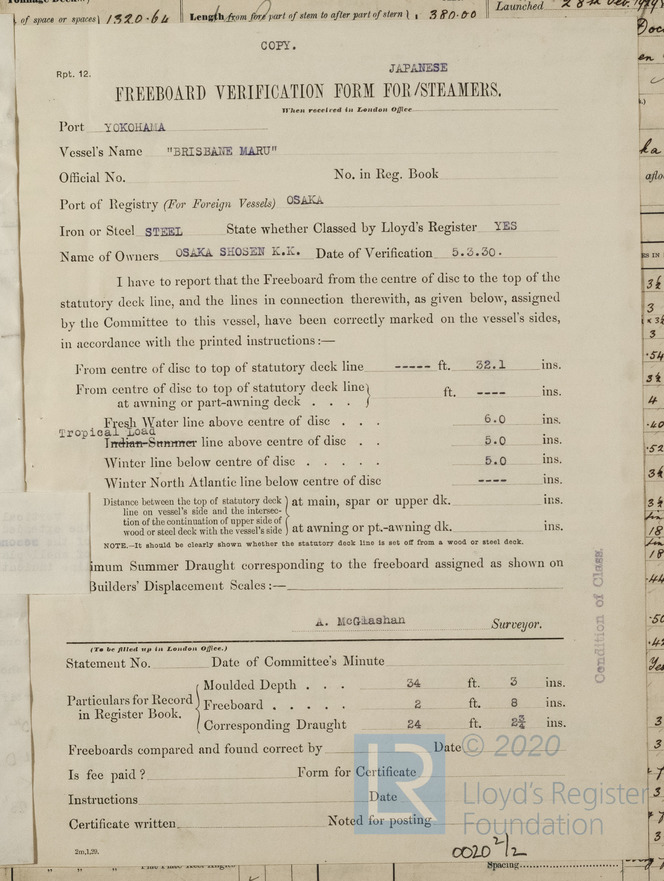 of space or spaces) 1320.64 Length from fore part of stem to after part of stern 380.00 Launched
COPY.
Rpt. 12.
JAPANESE
FREEBOARD VERIFICATION FORM FOR/STEAMERS.
When received in London Office
Port YOKOHAMA
Vessel's Name "BRISBANE MARU"
Official No. No. in Reg. Book
Port of Registry (For Foreign Vessels) OSAKA
Iron or Steel STEEL State whether Classed by Lloyd's Register YES
Name of Owners OSAKA SHOSEN K.K. Date of Verification 5.3.30.
I have to report that the Freeboard from the centre of disc to the top of the
statutory deck line, and the lines in connection therewith, as given below, assigned
by the Committee to this vessel, have been correctly marked on the vessel's sides,
in accordance with the printed instructions:—
From centre of disc to top of statutory deck line ----- ft. 32.1 ins.
From centre of disc to top of statutory deck line
at awning or part-awning deck . . . ft. ---- ins.
Fresh Water line above centre of disc . . . 6.0 ins.
Tropical Load
Indian Summer line above centre of disc . . 5.0 ins.
Winter line below centre of disc . . . . . 5.0 ins.
Winter North Atlantic line below centre of disc ---- ins.
Distance between the top of statutory deck
line on vessel's side and the intersec-
tion of the continuation of upper side of
wood or steel deck with the vessel's side
at main, spar or upper dk. ins.
at awning or pt.-awning dk. ins.
NOTE.—It should be clearly shown whether the statutory deck line is set off from a wood or steel deck.
imum Summer Draught corresponding to the freeboard assigned as shown on
Builders' Displacement Scales:—
A. McGlashan Surveyor.
Condition of Class.
(To be filled up in London Office.)
Statement No. Date of Committee's Minute
Particulars for Record
in Register Book.
Moulded Depth . . . 34 ft. 3 ins.
Freeboard . . . . . 2 ft. 8 ins.
Corresponding Draught 24 ft. 2¾ ins.
Freeboards compared and found correct by Date
Is fee paid? Form for Certificate
Instructions Date
Certificate written Noted for posting
2m,1,29.
0020 2/2
Spacing
LR © 2020
Lloyd's Register
Foundation